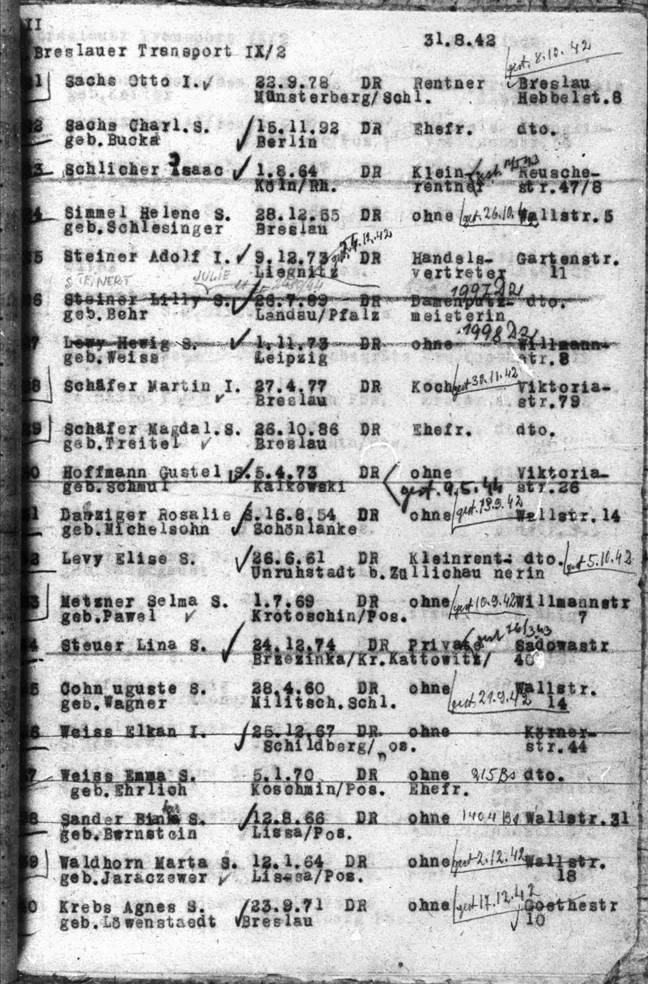 II
Breslauer Transport IX/2 31.8.42
gest. 8.10.42
1 Sachs Otto I. 22.9.78 DR Rentner Breslau
Münsterberg/Schl. Hebbelst.8
2 Sachs Charl.S. 15.11.92 DR Ehefr. dto.
geb.Bucka Berlin
3 Schlicher Isaac 1.8.64 DR Klein- gest. Reusche-
Köln/Rh. rentner str.47/8
4 Simmel Helene S. 28.12.55 DR ohne gest. 26.10.42 Wallstr.5
geb.Schlesinger Breslau
5 Steiner Adolf I. 9.12.73 DR Handels- Gartenstr.
Liegnitz vertreter 11
STEINERT JULIE
6 Steiner Lilly S. 26.7.89 DR Damenputz- dto.
geb.Behr Landau/Pfalz meisterin
7 Lewy Hewig S. 1.11.73 DR ohne Willmann-
geb.Weiss Leipzig str.8
8 Schäfer Martin I. 27.4.77 DR Koch gest 30.11.42 Viktoria-
Breslau str.79
9 Schäfer Magdal.S. 26.10.86 DR Ehefr. dto.
geb.Treitel Breslau
0 Hoffmann Gustel S. 5.4.73 DR ohne Viktoria-
geb.Schmul Kalkowski gest. 9.5.44 str.26
1 Danziger Rosalie S. 16.8.54 DR ohne gest 13.9.42 Wallstr.14
geb.Michelsohn Schönlanke
2 Levy Elise S. 26.6.61 DR Kleinrent- dto. gest 5.10.42
Unruhstadt b.Züllichau nerin
3 Metzner Selma S. 1.7.69 DR ohne gest 10.9.42 Willmannstr
geb.Pawel Krotoschin/Pos. 7
4 Steuer Lina S. 24.12.74 DR Private gest Sadowastr
Brzezinka/Kr.Kattowitz/ 40
5 Cohn uguste S. 28.4.60 DR ohne Wallstr.
geb.Wagner Militsch.Schl. gest. 21.9.42 14
6 Weiss Elkan I. 25.12.67 DR ohne Körner-
Schildberg/Pos. str.44
7 Weiss Emma S. 5.1.70 DR ohne 915 Bs dto.
geb.Ehrlich Koschmin/Pos. Ehefr.
8 Sander S. 12.8.66 DR ohne Wallstr.31
geb.Bernstein Lissa/Pos.
9 Waldhorn Marta S. 12.1.64 DR ohne gest 2.12.42 Wallstr.
geb.Jaraczewer Lissa/Pos. 18
0 Krebs Agnes S. 23.9.71 DR ohne gest 17.12.42 Goethestr
geb.Löwenstaedt Breslau 10